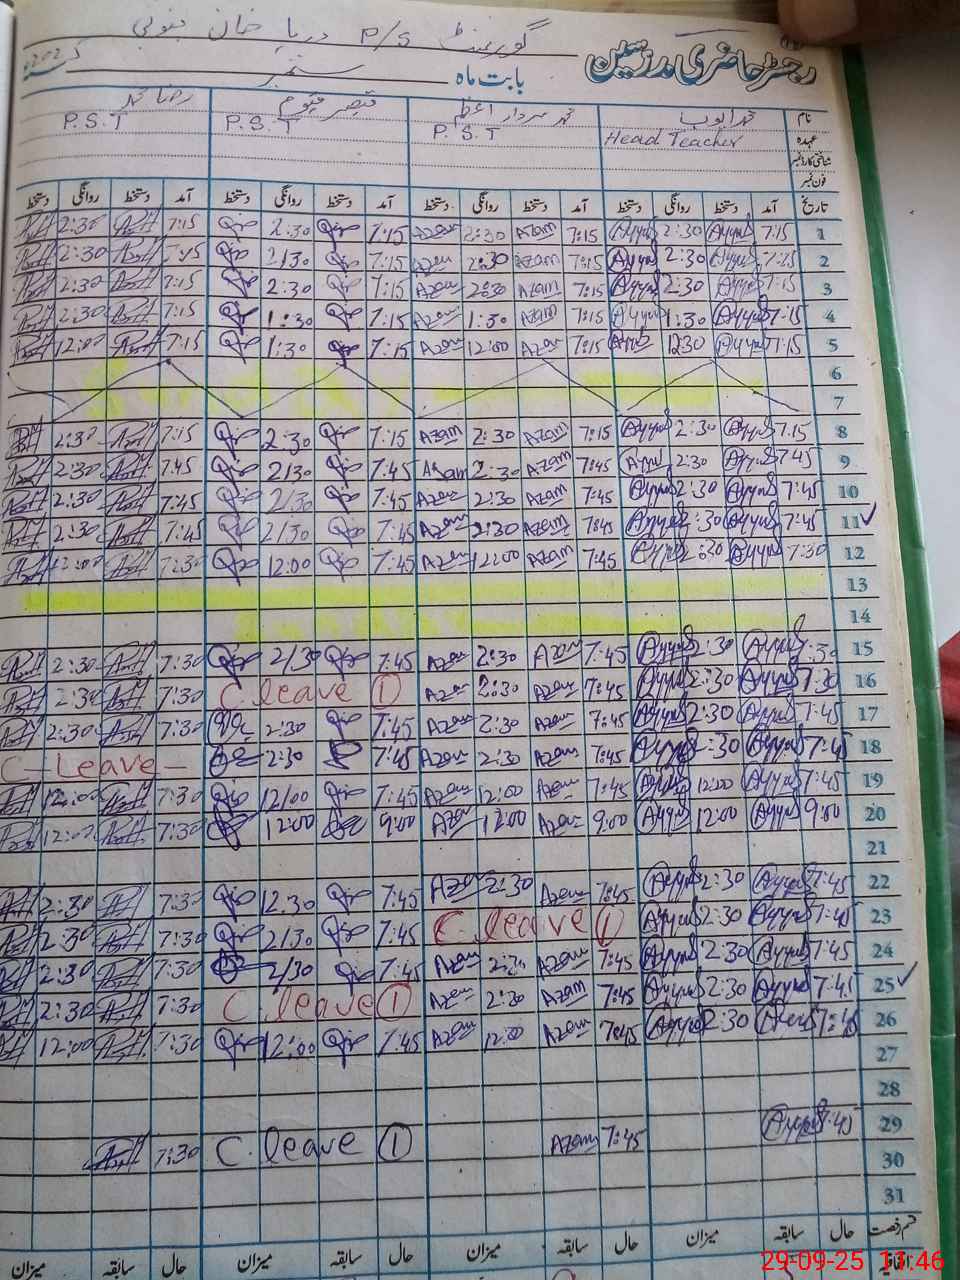 رجسٹر حاضری مدرسین
گورنمنٹ P/S دریا خان جنوبی
بابت ماہ ستمبر 2025
نام محمد ایوب محمد سردار اعظم قیصر قیوم رضا محمد
عہدہ Head Teacher P.S.T P.S.T P.S.T
شناختی کارڈ نمبر
فون نمبر
تاریخ آمد دستخط روانگی دستخط آمد دستخط روانگی دستخط آمد دستخط روانگی دستخط آمد دستخط روانگی دستخط
1 7:15 Ayyub 2:30 Ayyub 7:15 Azam 2:30 Azam 7:15 2:30 7:15 2:30
2 7:15 Ayyub 2:30 Ayyub 7:15 Azam 2:30 Azam 7:15 2:30 2:30
3 7:15 Ayyub 2:30 Ayyub 7:15 Azam 2:30 Azam 7:15 2:30 7:15 2:30
4 7:15 Ayyub 1:30 Ayyub 7:15 Azam 1:30 Azam 7:15 1:30 7:15 2:30
5 7:15 Ayyub 1230 Ayyub 7:15 Azam 12:00 Azam 7:15 1:30 7:15 12:00
6
7
8 7:15 Ayyub 2:30 Ayyub 7:15 Azam 2:30 Azam 7:15 2:30 7:15 2:30
9 7:45 Ayyub 2:30 Ayyub 7:45 Azam 2:30 Azam 7:45 2/30 7:45 2:30
10 7:45 Ayyub 2:30 Ayyub 7:45 Azam 2:30 Azam 7:45 2/30 7:45 2:30
11 7:45 Ayyub 2:30 Ayyub 7:45 Azam 2:30 Azam 7:45 2/30 7:45 2:30
12 7:30 Ayyub 2:30 Ayyub 7:45 Azam 12:00 Azam 7:45 12:00 7:30
13
14
15 7:30 Ayyub 2:30 Ayyub 7:45 Azam 2:30 Azam 7:45 2/30 7:30 2:30
16 7:30 Ayyub 2:30 Ayyub 7:45 Azam 2:30 Azam C. leave ① 7:30 2:30
17 7:45 Ayyub 2:30 Ayyub 7:45 Azam 2:30 Azam 7:45 2:30 7:30 2:30
18 7:45 Ayyub 2:30 Ayyub 7:45 Azam 2:30 Azam 7:45 2:30 C - Leave -
19 7:45 Ayyub 12:00 Ayyub 7:45 Azam 12:00 Azam 7:45 12/00 7:30 12:00
20 9:00 Ayyub 12:00 Ayyub 9:00 Azam 12:00 Azam 9:00 12:00 7:30 12:00
21
22 7:45 Ayyub 2:30 Ayyub 7:45 Azam 2:30 Azam 7:45 12.30 7:30 2:30
23 7:45 Ayyub 2:30 Ayyub C. leave ① 7:45 2/30 7:30 2:30
24 7:45 Ayyub 2:30 Ayyub 7:45 Azam 2:30 Azam 7:45 2/30 7:30 2:30
25 7:45 Ayyub 2:30 Ayyub 7:45 Azam 2:30 Azam C. leave ① 7:30 2:30
26 7:45 Ayyub 2:30 Ayyub 7:45 Azam 12:00 Azam 7:45 12:00 7:30 12:00
27
28
29 7:45 Ayyub 7:45 Azam C. leave ① 7:30
30
31
قسم رخصت حال سابقہ میزان حال سابقہ میزان حال سابقہ میزان حال سابقہ میزان
اتفاقیہ
29-09-25 11:46